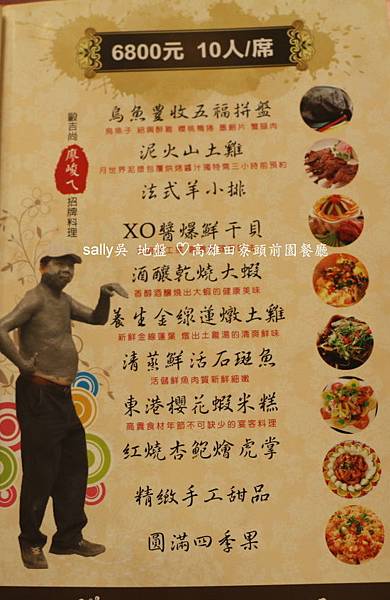 6800元 10人/席
觀吉尚 廖峻飞 招牌料理
烏魚豐收五福拼盤
烏魚子 紹興醉雞 櫻桃鴨捲 墨魚片 蟹腿肉
泥火山土雞
月世界泥漿包覆烘烤醬汁獨特需三小時前預約
法式羊小排
XO醬爆鮮干貝
sally吳 地盤 ♡高雄田寮頭前園餐廳
酒釀乾燒大蝦
香醇酒釀燒出大蝦的健康美味
養生金線蓮燉土雞
新鮮金線蓮葉 燉出土雞湯的清爽鮮味
清蒸鮮活石斑魚
活儲鮮魚肉質新鮮細嫩
東港櫻花蝦米糕
高貴食材年節不可缺少的宴客料理
紅燒杏鮑燴虎掌
精緻手工甜品
圓滿四季果